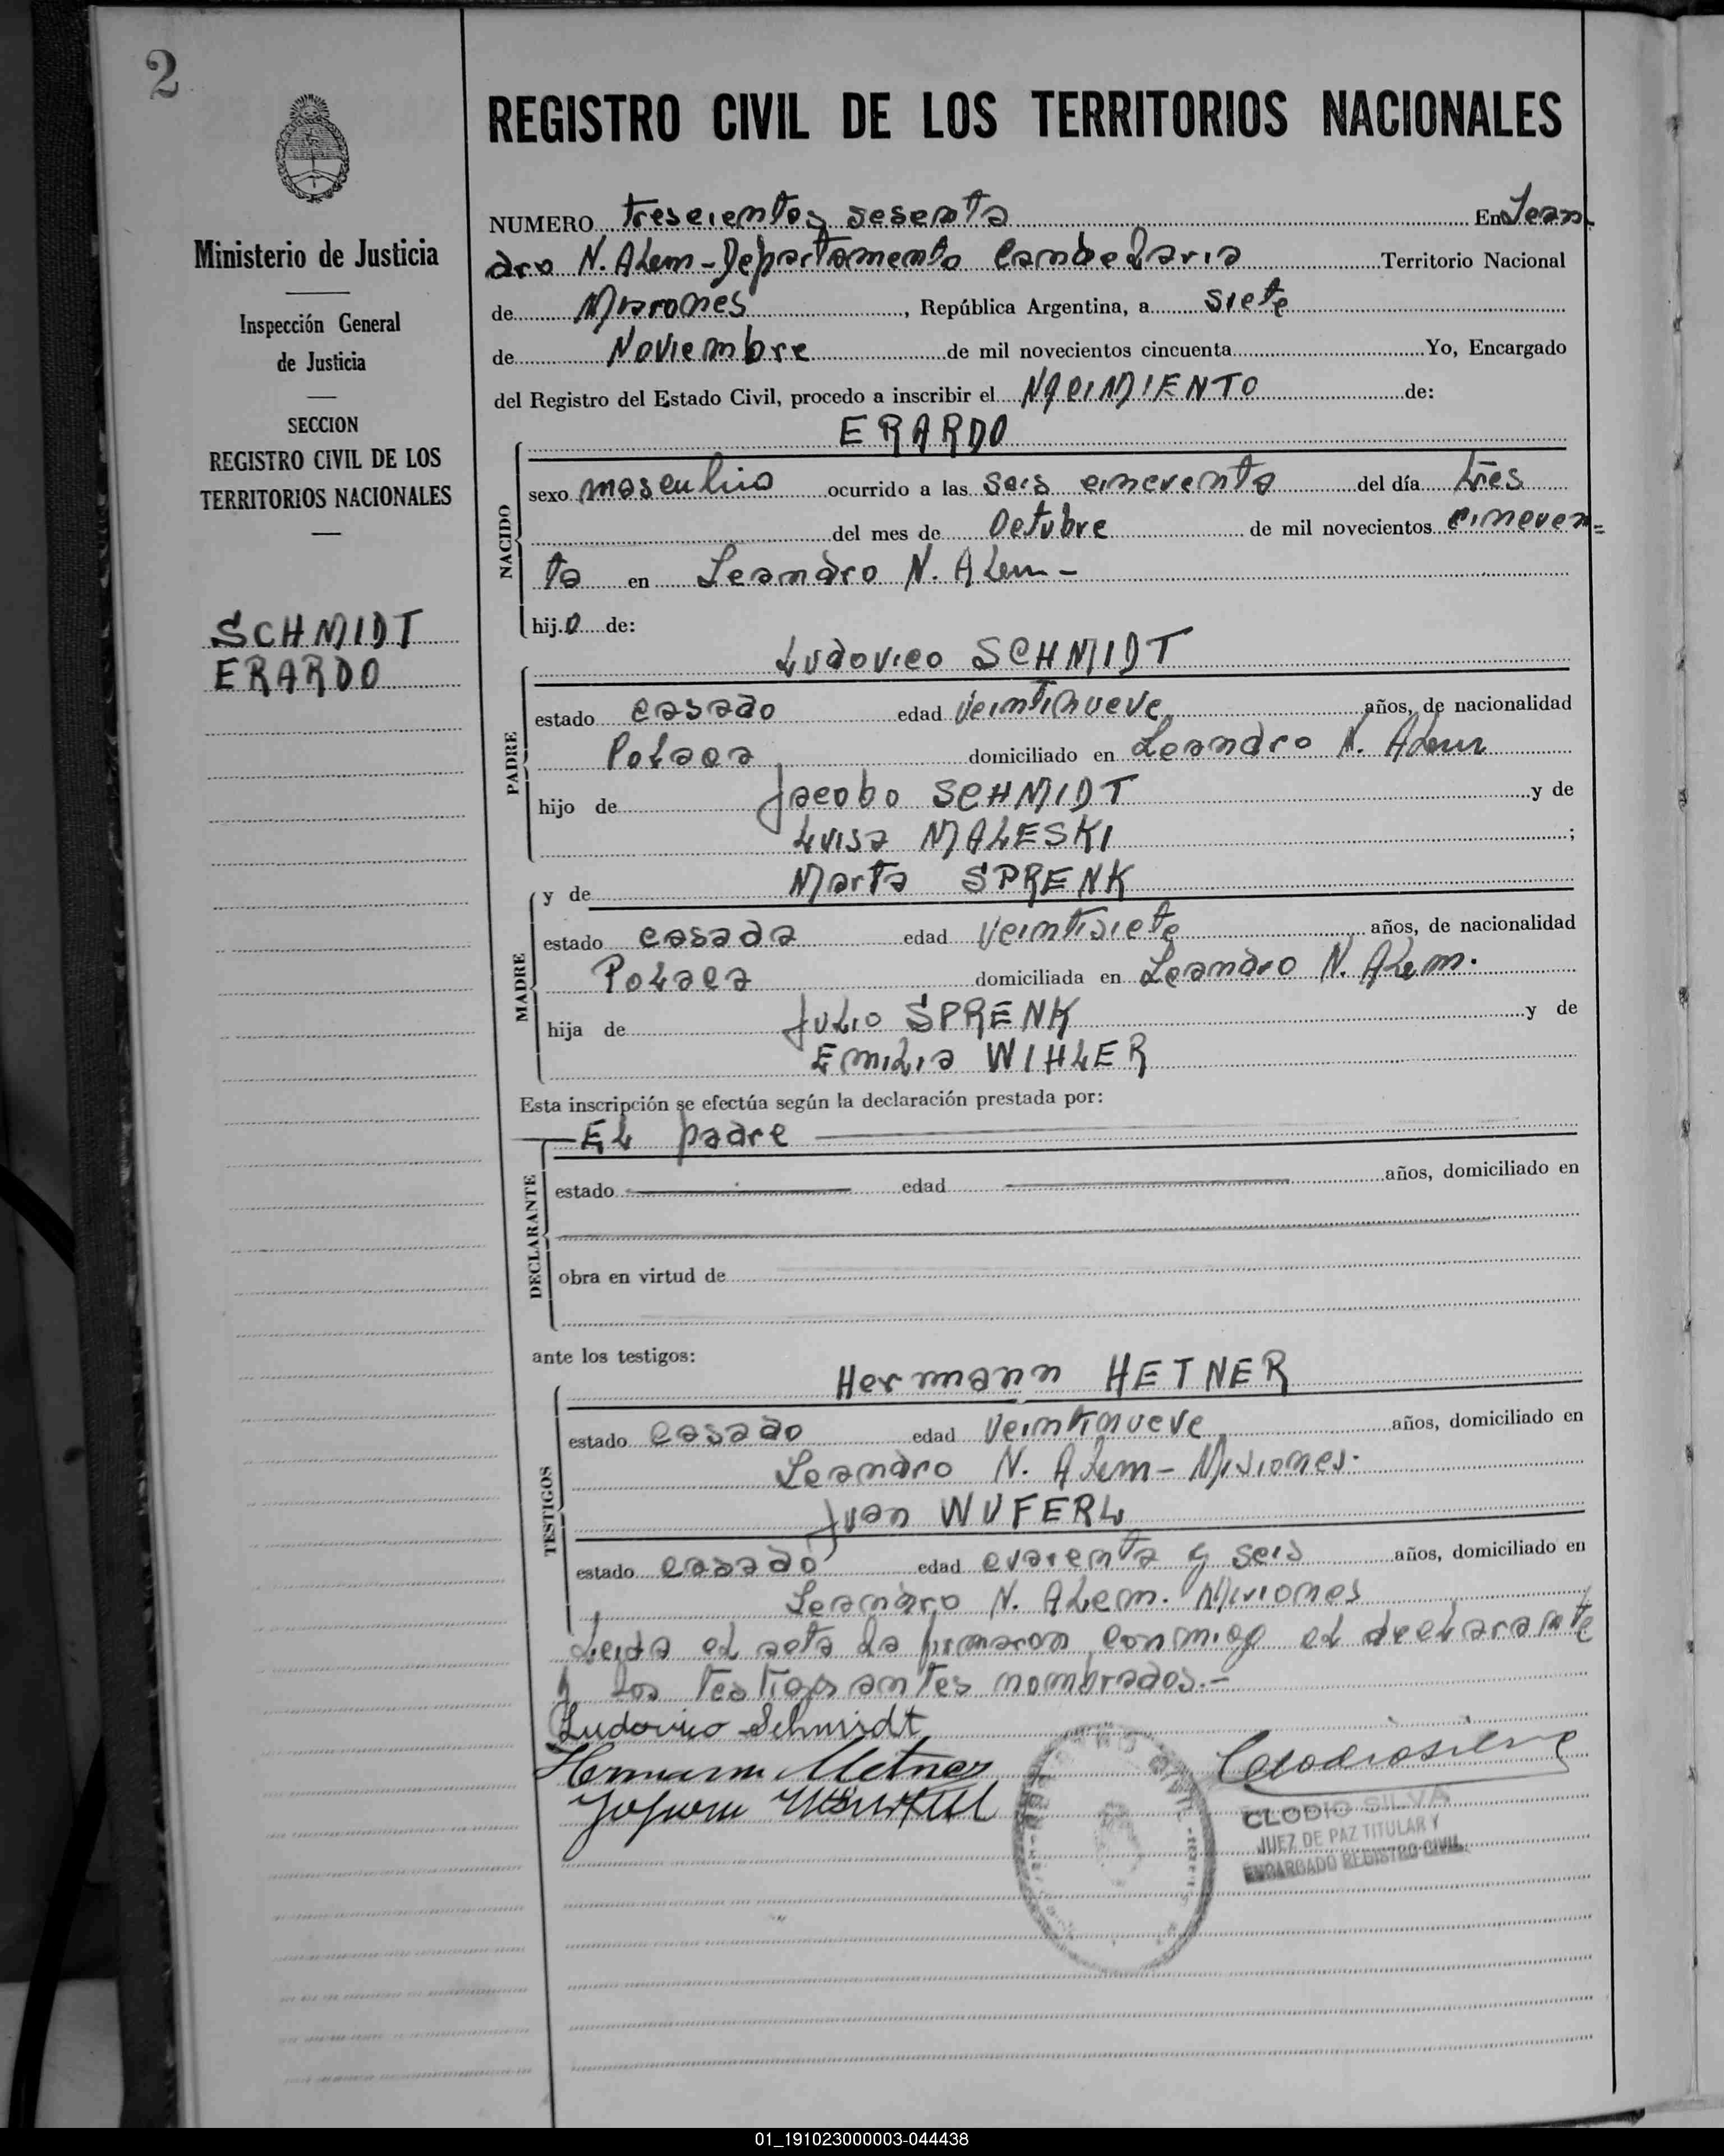 2
REGISTRO CIVIL DE LOS TERRITORIOS NACIONALES
Ministerio de Justicia
Inspección General
de Justicia
SECCION
REGISTRO CIVIL DE LOS
TERRITORIOS NACIONALES
SCHMIDT
ERARDO
NUMERO trescientos sesenta En Lean
dro N. Alem - Departamento Candelaria Territorio Nacional
de Misiones, República Argentina, a siete
de Noviembre de mil novecientos cincuenta Yo, Encargado
del Registro del Estado Civil, procedo a inscribir el NACIMIENTO de:
ERARDO
NACIDO
sexo masculino ocurrido a las seis cincuenta del día tres
del mes de Octubre de mil novecientos cincuen=
ta en Leandro N. Alem -
hijo de:
Ludovico SCHMIDT
PADRE
estado casado edad veintinueve años, de nacionalidad
Polaca domiciliado en Leandro N. Alem
hijo de Jacobo SCHMIDT y de
Luisa MALESKI ;
y de Marta SPRENK
MADRE
estado casada edad veintisiete años, de nacionalidad
Polaca domiciliada en Leandro N. Alem.
hija de Julio SPRENK y de
Emilia WIHLER
Esta inscripción se efectúa según la declaración prestada por:
El padre
DECLARANTE
estado edad años, domiciliado en
obra en virtud de
ante los testigos:
Hermann HETNER
TESTIGOS
estado casado edad veintinueve años, domiciliado en
Leandro N. Alem - Misiones.
Juan WUFERL
estado casado edad cuarenta y seis años, domiciliado en
Leandro N. Alem. Misiones
Leida el acta la firmaron conmigo el declarante
y los testigos antes nombrados.-
Ludovico Schmidt
Hermann
Clodio Silva
CLODIO SILVA
JUEZ DE PAZ TITULAR Y
ENCARGADO REGISTRO CIVIL
01_191023000003-044438